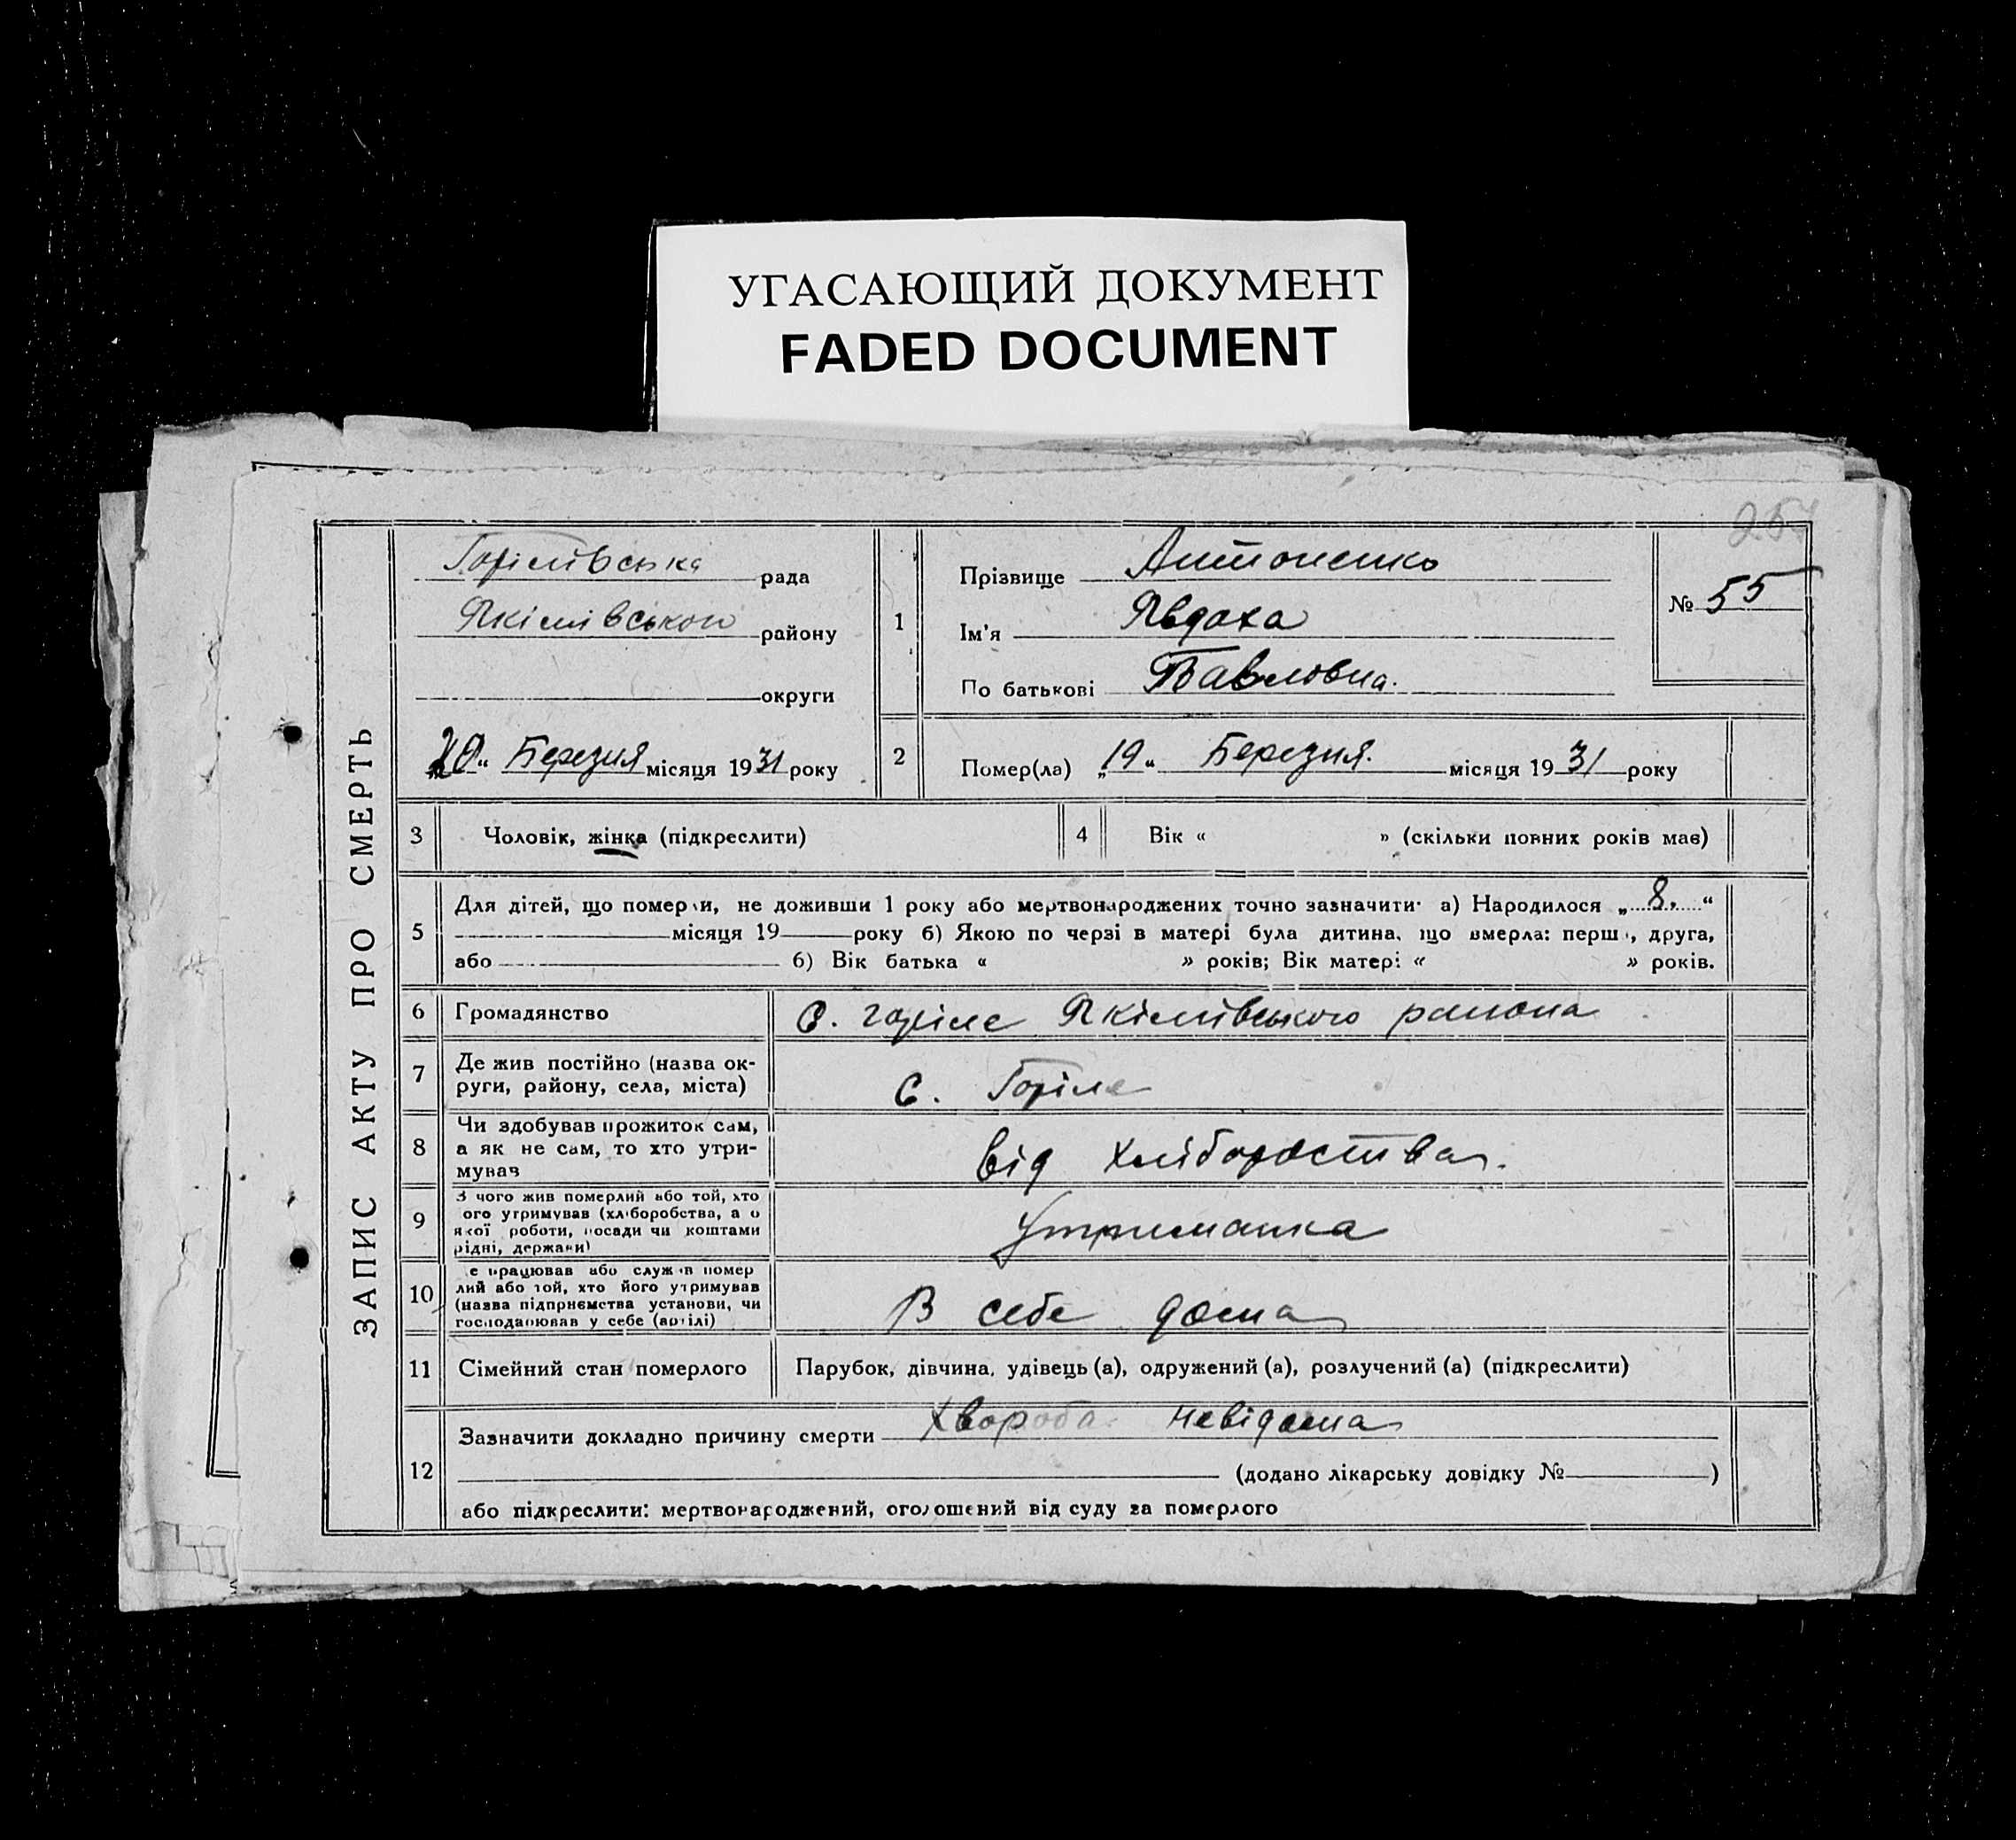 УГАСАЮЩИЙ ДОКУМЕНТ
FADED DOCUMENT
ЗАПИС АКТУ ПРО СМЕРТЬ
Горілівська рада
Якімівського району
округи
„20“ Березня місяця 1931 року
1
Прізвище Антоненко
Ім'я Явдоха
По батькові Павловна.
№ 55
2
Помер(ла) „19“ Березня. місяця 1931 року
3 Чоловік, жінка (підкреслити)
4 Вік « » (скільки повних років має)
5
Для дітей, що померли, не доживши 1 року або мертвонароджених точно зазначити: а) Народилося „8.“
місяця 19 року б) Якою по черзі в матері була дитина, що вмерла: перша, друга,
або 6) Вік батька « » років; Вік матері « » років.
6 Громадянство С. горіле Якімівського района
7 Де жив постійно (назва ок-
руги, району, села, міста)
С. Горіле
8 Чи здобував прожиток сам,
а як не сам, то хто утри-
мував
від хлібороства.
9 З чого жив померлий або той, хто
ого утримував (хліборобства, а о
якої роботи, посади чи коштами
рідні, держави)
Утриманка
10 е працював або служив помер
лий або той, хто його утримував
(назва підприємства установи, чи
господарював у себе (артілі)
В себе дома
11 Сімейний стан померлого Парубок, дівчина, удівець (а), одружений (а), розлучений (а) (підкреслити)
12
Зазначити докладно причину смерти Хвороба невідома
(додано лікарську довідку № )
або підкреслити: мертвонароджений, оголошений від суду за померлого